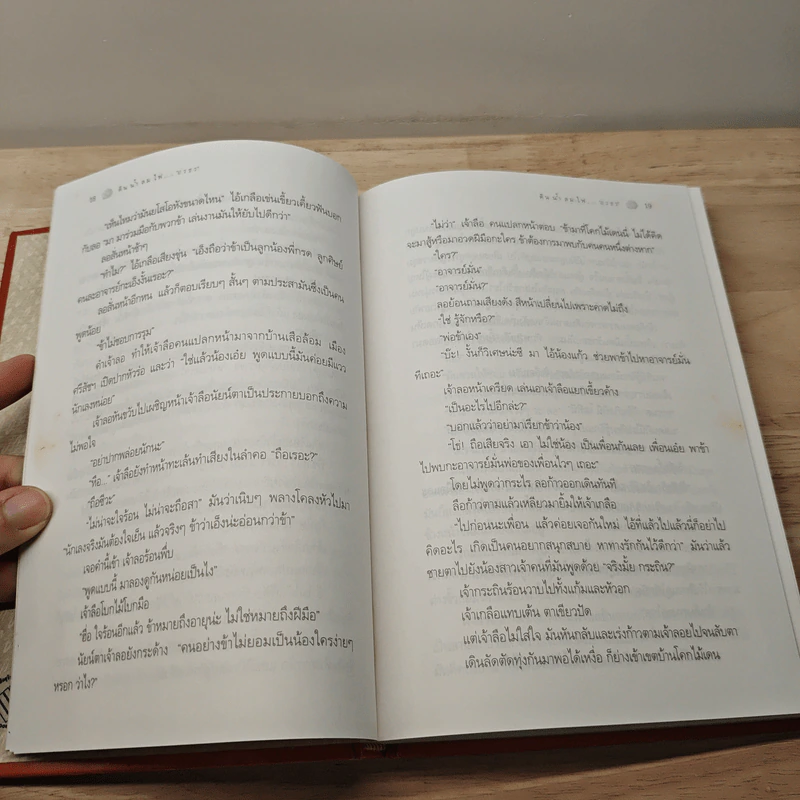 "เห็นไหมว่ามันยโสโอหังขนาดไหน" ไอ้เกลือเช่นเขี้ยวเคี้ยวฟันบอก
กับลอ "มา มาร่วมมือกับพวกข้า เล่นงานมันให้ยับไปดีกว่า"
ลอสั่นหน้าช้าๆ
"ทำไม?" ไอ้เกลือเสียงขุ่น "เอ็งถือว่าข้าเป็นลูกน้องพี่กรด ลูกศิษย์
คนละอาจารย์กะเอ็งงั้นเรอะ?"
ลอสั่นหน้าอีกหน แล้วก็ตอบเรียบๆ สั้นๆ ตามประสามันซึ่งเป็นคน
พูดน้อย
"ข้าไม่ชอบการรุม"
คำเจ้าลอ ทำให้เจ้าลือคนแปลกหน้ามาจากบ้านเสือล้อม เมือง
ศรีสัชฯ เปิดปากหัวร่อ และว่า "ใช่แล้วน้องเอ๋ย พูดแบบนี้มันค่อยมีแวว
นักเลงหน่อย"
เจ้าลอหันขวับไปเผชิญหน้าเจ้าลือนัยน์ตาเป็นประกายบอกถึงความ
ไม่พอใจ
"อย่าปากพล่อยนักนะ"
"หือ..." เจ้าลือยังทำหน้าทะเล้นทำเสียงในลำคอ "ถือเรอะ?"
"ถือซีวะ"
"ไม่น่าจะใจร้อน ไม่น่าจะถือสา" มันว่าเนิบๆ พลางโคลงหัวไปมา
"นักเลงจริงมันต้องใจเย็น แล้วจริงๆ ข้าว่าเอ็งน่ะอ่อนกว่าข้า"
เจอคำนี้เข้า เจ้าลอร้อนพึ่บ
"พูดแบบนี้ มาลองดูกันหน่อยเป็นไง"
เจ้าลือโบกไม้โบกมือ
"ฮื่อ ใจร้อนอีกแล้ว ข้าหมายถึงอายุน่ะ ไม่ใช่หมายถึงฝีมือ"
นัยน์ตาเจ้าลอยังกระด้าง "คนอย่างข้าไม่ยอมเป็นน้องใครง่ายๆ
หรอก ว่าไง?"
19
"ไม่ว่า" เจ้าลือ คนแปลกหน้าตอบ "ข้ามาที่โคกไม้เดนนี่ ไม่ได้คิด
จะมาสู้หรือมาอวดฝีมือกะใคร ข้าต้องการมาพบกับคนคนหนึ่งต่างหาก"
"ใคร?"
"อาจารย์มั่น"
"อาจารย์มั่น?"
ลอย้อนถามเสียงดัง สีหน้าเปลี่ยนไปเพราะคาดไม่ถึง
"ใช่ รู้จักหรือ?"
"พ่อข้าเอง"
"บ๊ะ! งั้นก็วิเศษน่ะซี มา ไอ้น้องแก้ว ช่วยพาข้าไปหาอาจารย์มั่น
ทีเถอะ"
เจ้าลอหน้าเครียด เล่นเอาเจ้าลือแยกเขี้ยวค้าง
"เป็นอะไรไปอีกล่ะ?"
"บอกแล้วว่าอย่ามาเรียกข้าว่าน้อง"
"โช่! ถือเสียจริง เอา ไม่ใช่น้อง เป็นเพื่อนกันเลย เพื่อนเอ๋ย พาข้า
ไปพบกะอาจารย์มั่นพ่อของเพื่อนไวๆ เถอะ"
โดยไม่พูดว่ากระไร ลอก้าวออกเดินทันที
ลือก้าวตามแล้วเหลียวมายิ้มให้เจ้าเกลือ
"ไปก่อนนะเพื่อน แล้วค่อยเจอกันใหม่ ไอ้ที่แล้วไปแล้วนี่ก็อย่าไป
คิดอะไร เกิดเป็นคนอยากสนุกสบาย หาทางรักกันไว้ดีกว่า" มันว่าแล้ว
ชายตาไปยังน้องสาวเจ้าคนที่มันพูดด้วย "จริงมั้ย กระถิน?"
เจ้ากระถินร้อนวาบไปทั้งแก้มและหัวอก
เจ้าเกลือแทบเต้น ตาเขียวปัด
แต่เจ้าลือไม่ใส่ใจ มันหันกลับและเร่งก้าวตามเจ้าลอไปจนลับตา
เดินลัดตัดทุ่งกันมาพอได้เหงื่อ ก็ย่างเข้าเขตบ้านโคกไม้เดน